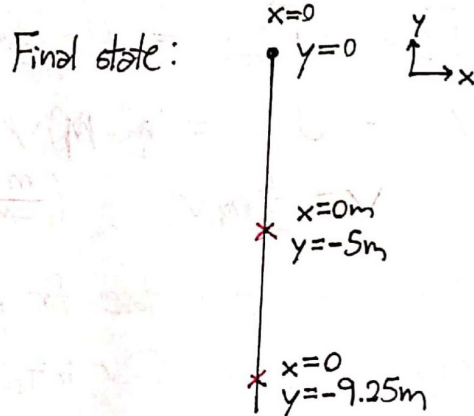 x=0
Final state:
y=0
y
x
x=0m
y=-5m
x=0
y=-9.25m